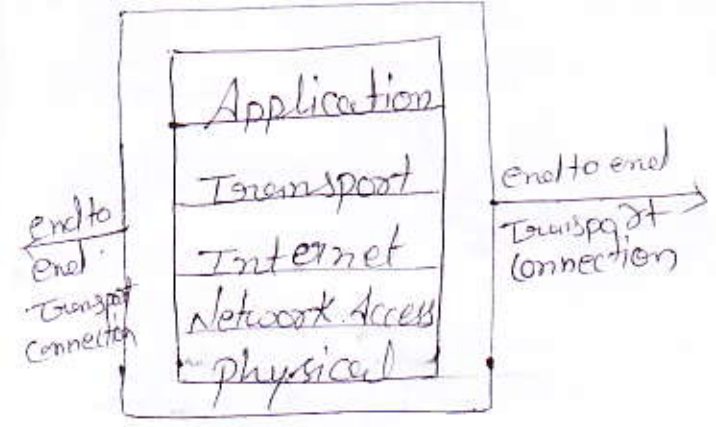 Application
Transport
Internet
Network Access
physical
end to
end
Transport
Connection
end to end
Transport
Connection